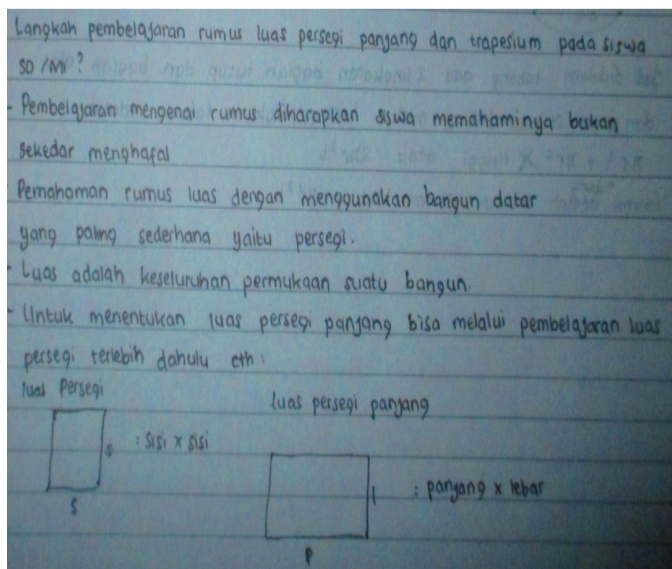 Langkah pembelajaran rumus luas persegi panjang dan trapesium pada siswa
SD / MI ?
- Pembelajaran mengenai rumus diharapkan siswa memahaminya bukan
sekedar menghafal
Pemahaman rumus luas dengan menggunakan bangun datar
yang paling sederhana yaitu persegi.
- Luas adalah keseluruhan permukaan suatu bangun.
- Untuk menentukan luas persegi panjang bisa melalui pembelajaran luas
persegi terlebih dahulu cth :
luas Persegi
: sisi x sisi
s
s
luas persegi panjang
: panjang x lebar
l
p